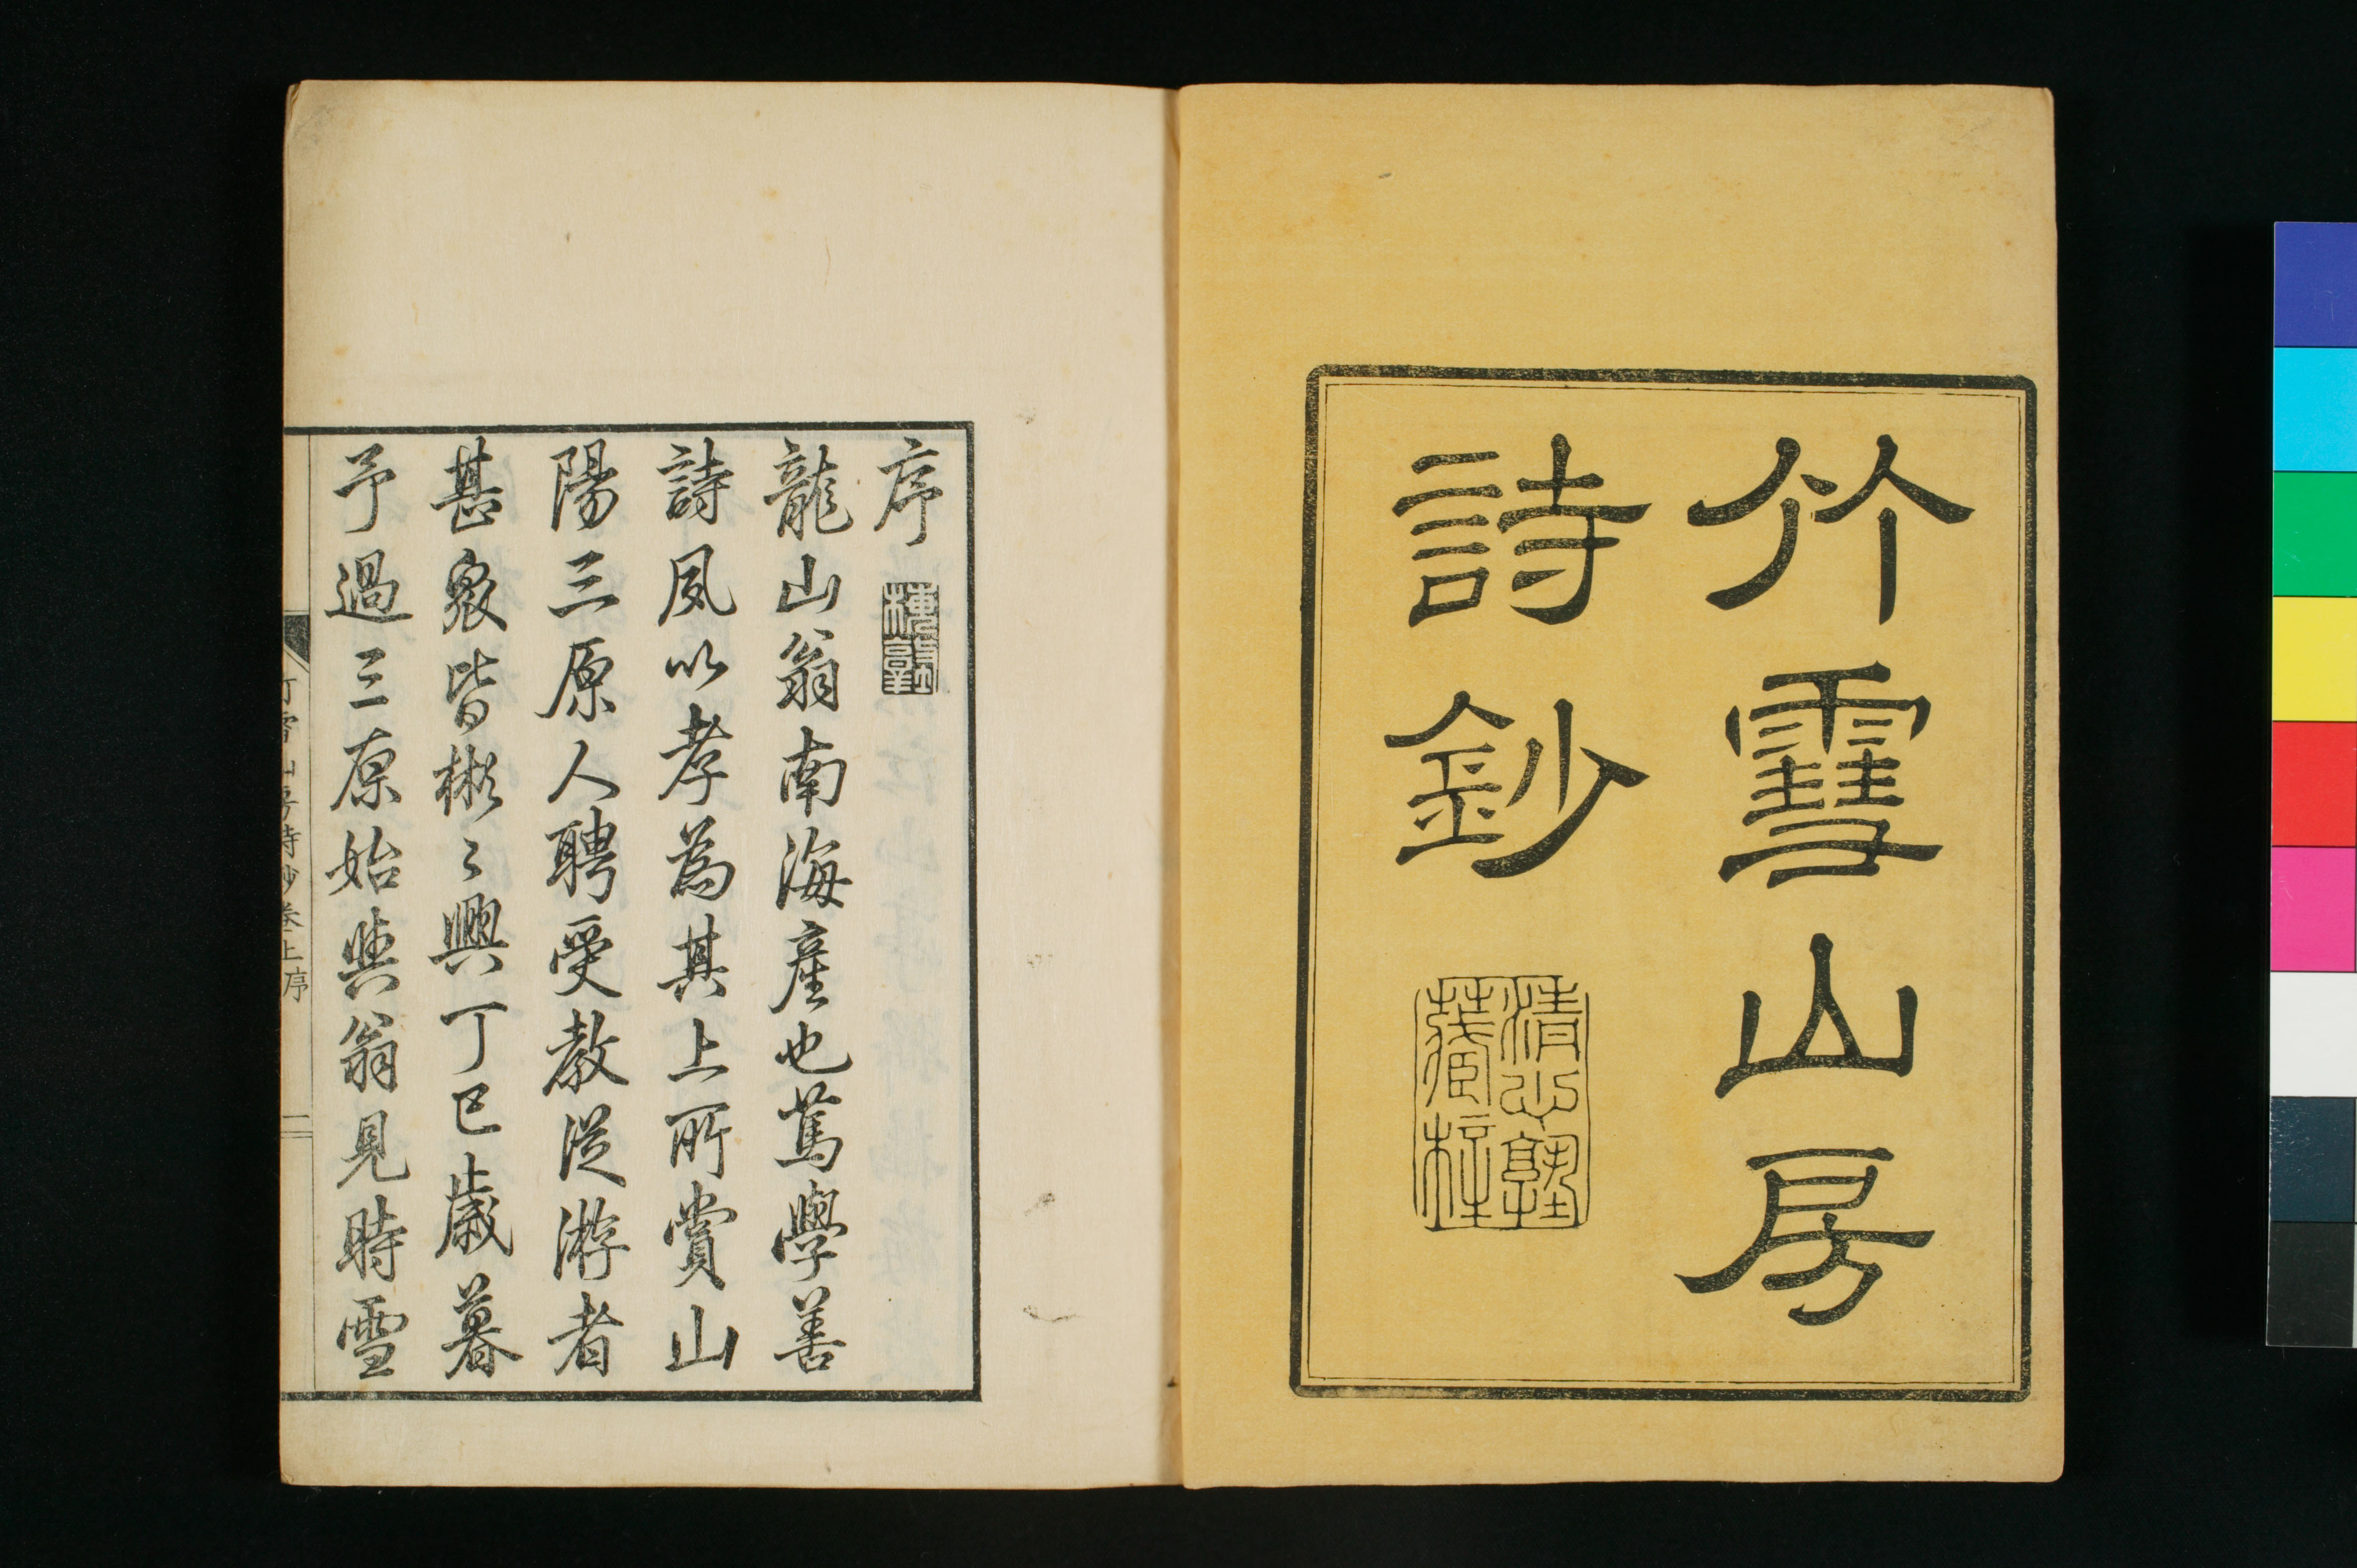 竹雪山房
詩鈔
清山塾
藏梓
序
龍山翁南海産也篤學善
詩夙以孝為其上所賞山
陽三原人聘受教從游者
甚衆皆彬〻興丁巳歲暮
予過三原始與翁見時雪
竹雪山房詩鈔卷上序 一